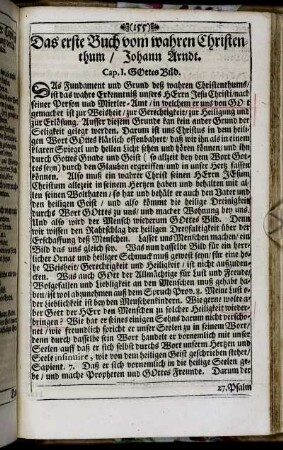 (155)
Das erste Buch vom wahren Christen-
thum / Johann Arndt.
Cap. I. GOttes Bild.
DAs Fundament und Grund deß wahren Christenthums /
ist das wahre Erkenntniß unsers HErrn JEsu Christi nach
seiner Person und Mittler-Amt / in welchem er uns von GOtt
gemachet ist zur Weißheit / zur Gerechtigkeit / zur Heiligung und
zur Erlösung. Ausser diesem Grunde kan kein ander Grund der
Seligkeit gelegt werden. Darum ist uns Christus in dem heili-
gen Wort GOttes klärlich offenbahret / daß wir ihn als in einem
klaren Spiegel und hellen Licht sehen und hören können / und ihn
durch Gottes Gnade und Geist / (so allzeit bey dem Wort Got-
tes seyn) durch den Glauben ergreiffen und in unser Hertz fassen
können. Also muß ein wahrer Christ seinen HErrn JEsum
Christum allezeit in seinem Hertzen haben und behalten mit al-
len seinen Wolthaten / so hat und behält er auch den Vater und
den heiligen Geist / und also kömmt die heilige Dreinigkeit
durchs Wort GOttes zu uns / und machet Wohnung bey uns.
Und also wird der Mensch wiederum GOttes Bild. Denn
wir wissen den Rahtschlag der heiligen Dreyfaltigkeit über der
Erschaffung deß Menschen. Lasset uns Menschen machen / ein
Bild das uns gleich sey. Was nun dasselbe Bild für ein herr-
licher Ornat und heiliger Schmuck muß gewest seyn / für eine ho-
he Weißheit / Gerechtigkeit und Heiligkeit / ist nicht außzuden-
cken. Was auch GOtt der Allmächtige für Lust und Freude /
Wolgefallen und Lieblichkeit an den Menschen muß gehabt ha-
ben / ist wol abzunehmen auß dem Spruch Prov. 8. Meine Lust o-
der Lieblichkeit ist bey den Menschenkindern. Wie gerne wolte a-
ber Gott der HErr den Menschen zu solcher Heiligkeit wieder-
bringen? Wie hat er seines einigen Sohns darum nicht verscho-
net / wie freundlich spricht er unser Seelen zu in seinem Wort /
denn durch dasselbe sein Wort handelt er vornemlich mit unser
Seelen auff daß er sich selbst durchs Wort unserm Hertzen und
Seele insinuire, wie von dem heiligen Geist geschrieben stehet /
Sapient. 7. Daß er sich vornemlich in die heilige Seelen ge-
be / und mache Propheten und GOttes Freunde. Darum der
27. Psalm